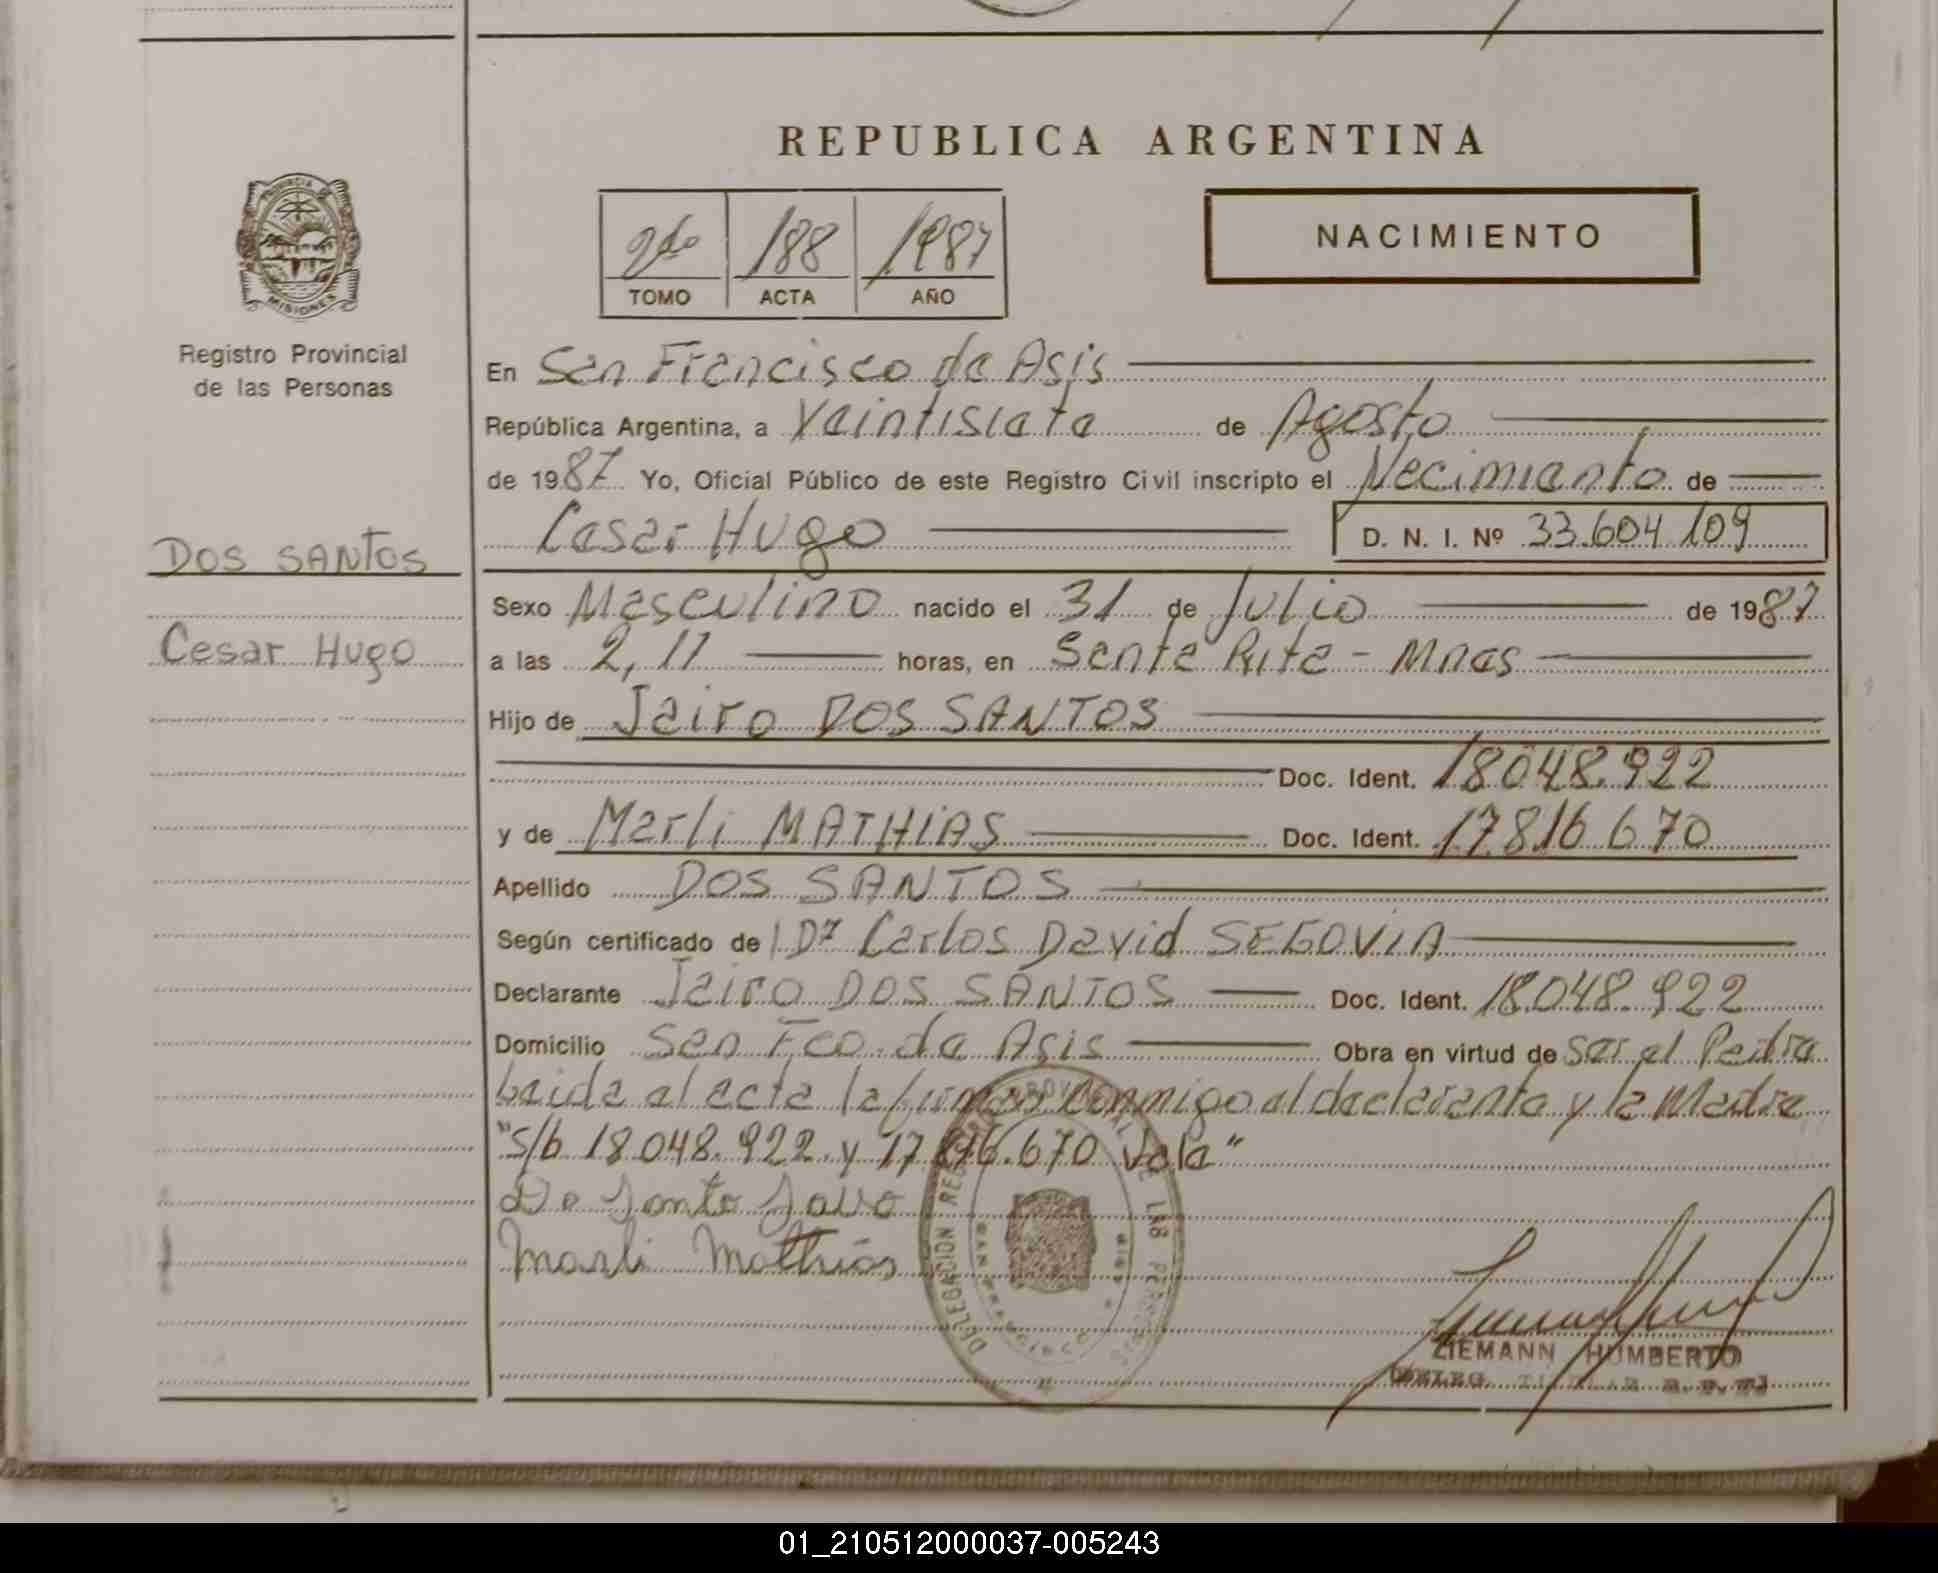 REPUBLICA ARGENTINA
PROVINCIA DE
MISIONES
2do 188 1987
TOMO ACTA AÑO
NACIMIENTO
Registro Provincial
de las Personas
En San Francisco de Asis
República Argentina, a Veintisiete de Agosto
de 1987 Yo, Oficial Público de este Registro Civil inscripto el Nacimiento de
Cesar Hugo D. N. I. Nº 33.604.109
DOS SANTOS
Cesar Hugo
Sexo Masculino nacido el 31 de Julio de 1987
a las 2,11 horas, en Santa Rita - Mnes
Hijo de Jairo DOS SANTOS
Doc. Ident. 18048.922
y de Marli MATHIAS Doc. Ident. 17816670
Apellido DOS SANTOS
Según certificado de Dr Carlos David SEGOVIA
Declarante Jairo DOS SANTOS Doc. Ident. 18.048.922
Domicilio San Fco. de Asis Obra en virtud de ser el Padre
Leida el acta la firman conmigo el declarante y la Madre
"S/b 18.048.922 y 17816.670 Vale"
Marli Mathias
DELEGACION REG PROVINCIAL DE LAS PERSONAS
ZIEMANN HUMBERTO
01_210512000037-005243